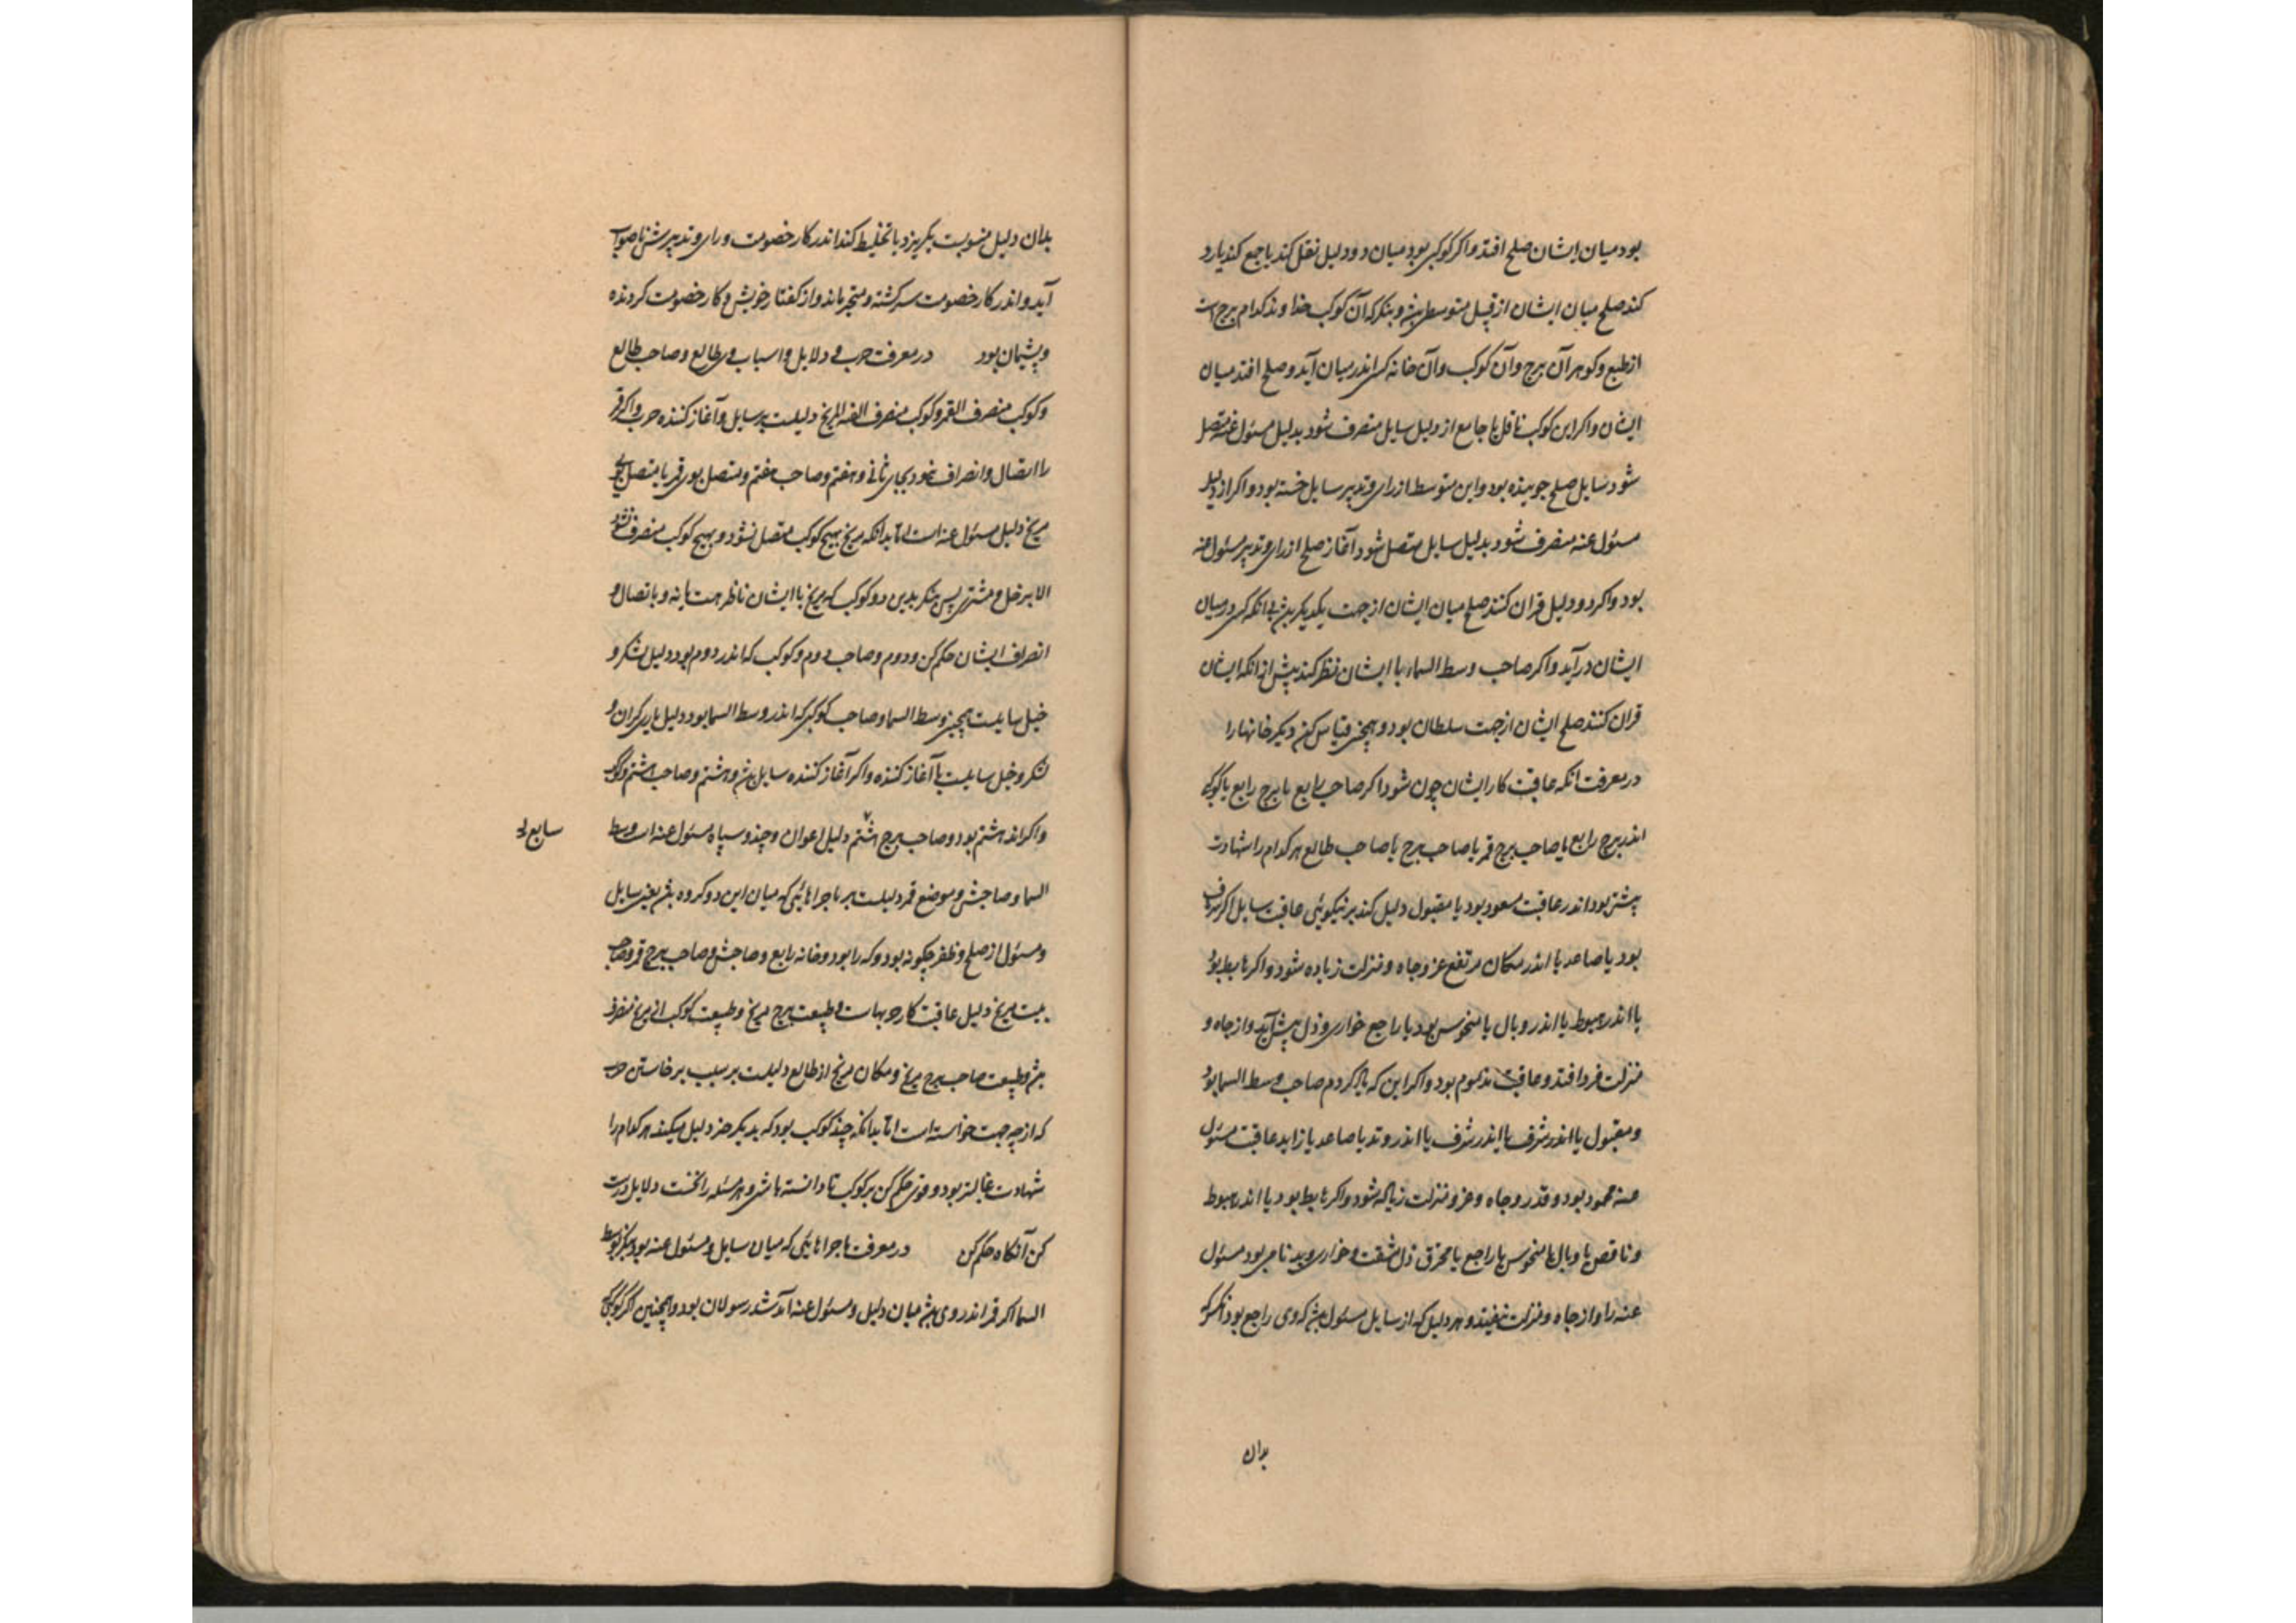 بود میان ایشان صلح افتد واکر کوکبی بود میان دو دلیل نقل کند یا جمع کند یا رد
کند صلح میان ایشان از قبل متوسطی بشد و بنکر که آن کوکب خداوند کدام برج است
از طبع وکوهر آن برج وآن کوکب وآن خانه کسی اندر میان آید وصلح افتد میان
ایشان واکر این کوکب ناقل یا جامع از دلیل سایل منصرف شود بدلیل مسئول عنه متصل
شود سایل صلح جوینده بود واین متوسط از رای وتدبیر سایل خسته بود واکر از دلیل
مسئول عنه منصرف شود بدلیل سایل متصل شود آغاز صلح از رای وتدبیر مسئول عنه
بود واکر دو دلیل قران کنند صلح میان ایشان از جهت یکدیکر بشد بی انکه کسی در میان
ایشان در آید واکر صاحب وسط السماء با ایشان نظر کند پیش از انکه ایشان
قران کنند صلح ایشان از جهت سلطان بود وهمچنین قیاس کن دیکر خانها را
در معرفت انکه عاقبت کار ایشان چون شود اکر صاحب رابع یا برج رابع یا کوکبی
اندر برج رابع یا صاحب برج قمر یا صاحب برج یا صاحب طالع هر کدام را شهادت
پیشتر بود اندر عاقبت مسعود بود یا مقبول دلیل کند بر نیکوئی عاقبت سایل اکر شرف
بود یا صاعد یا اندر مکان مرتفع عز وجاه ومنزلت زیاده شود واکر هابط بود
یا اندر هبوط یا اندر وبال یا منحوس بود یا راجع خواری وذل پیش آید واز جاه و
منزلت فرد افتد وعاقبت مذموم بود واکر این که یاد کردم صاحب وسط السما بود
ومقبول یا اندر شرف یا اندر شرف یا اندر وتد یا صاعد یا زاید عاقبت مسئول
عنه محمود بود وقدر وجاه وعز ومنزلت زیاده شود واکر هابط بود یا اندر هبوط
وناقص یا وبال یا منحوس یا راجع یا محترق ذل مشقت وخواری وبد نامی بود مسئول
عنه را واز جاه ومنزلت بیفتد وهر دلیل که از سایل مسئول بشد که وی راجع بود انکس که
بدان
بدان دلیل منسوبست بکریزد یا تخلیط کند اندر کار خصومت ورای وتدبیرش ناصواب
آید واندر کار خصومت سرکشته ومتحیر ماند واز کفتار خویش وکار خصومت کردنده
وپشیمان بود در معرفت حرب و دلایل واسباب وی طالع وصاحب طالع
وکوکب منصرف القمر وکوکب منصرف الفه المریخ دلیلست بر سایل وآغاز کننده حرب واکر قمر
را اتصال وانصراف نمود بجای ثانی وهفتم وصاحب هفتم ومتصل بوی قمر یا متصل بوی
مریخ دلیل مسئول عنه است اما بدانکه مریخ بهیچ کوکب متصل نشود و بهیچ کوکب منصرف نشود
الا بر زحل ومشتری پس بنکر بدین دو کوکب که مریخ با ایشان ناظر هست یا نه و با تصال و
انصراف ایشان حکم کن ودوم وصاحب دوم وکوکب که اندر دوم بود دلیل لشکر و
خیل سایلست همچنین وسط السما وصاحب کوکبی که اندر وسط السما بود دلیل یاریکران و
لشکر وخیل سایلست یا آغاز کننده واکر آغاز کننده سایل بشد وهشتم وصاحب هشتم وکوکب
واکر اندر هشتم بود وصاحب برج هشتم دلیل اعوان وجند وسپاه مسئول عنه است وسط
سابع له
السما وصاحبش وموضع قمر دلیلست بر ماجراهایی که میان این دو کروه بشد یعنی سایل
ومسئول از صلح وظفر چکونه بود وکه را بود وخانه رابع وصاحبش وصاحب برج قمر وصاحب
بیت مریخ دلیل عاقبت کار حربهاست وطبیعت برج مریخ وطبیعت کوکب انی مریخ منصرف
بشد وطبیعت صاحب برج مریخ ومکان مریخ از طالع دلیلست بر سبب برخاستن حرب
که از چه جهت خواسته است اما بدانکه چند کوکب بود که بدیکر حرز دلیل میکند هر کدام را
شهادت غالبتر بود وقوی حکم کن بر کوکب تا دانسته باشی وهر مسئله را نخست دلایل درست
کن آنکاه حکم کن در معرفت ماجراهایی که میان سایل ومسئول عنه بود بنکر بوسط
السما اکر قمر اندر وی بشد میان دلیل ومسئول عنه آمد شد رسولان بود وهمچنین اکر کوکبی